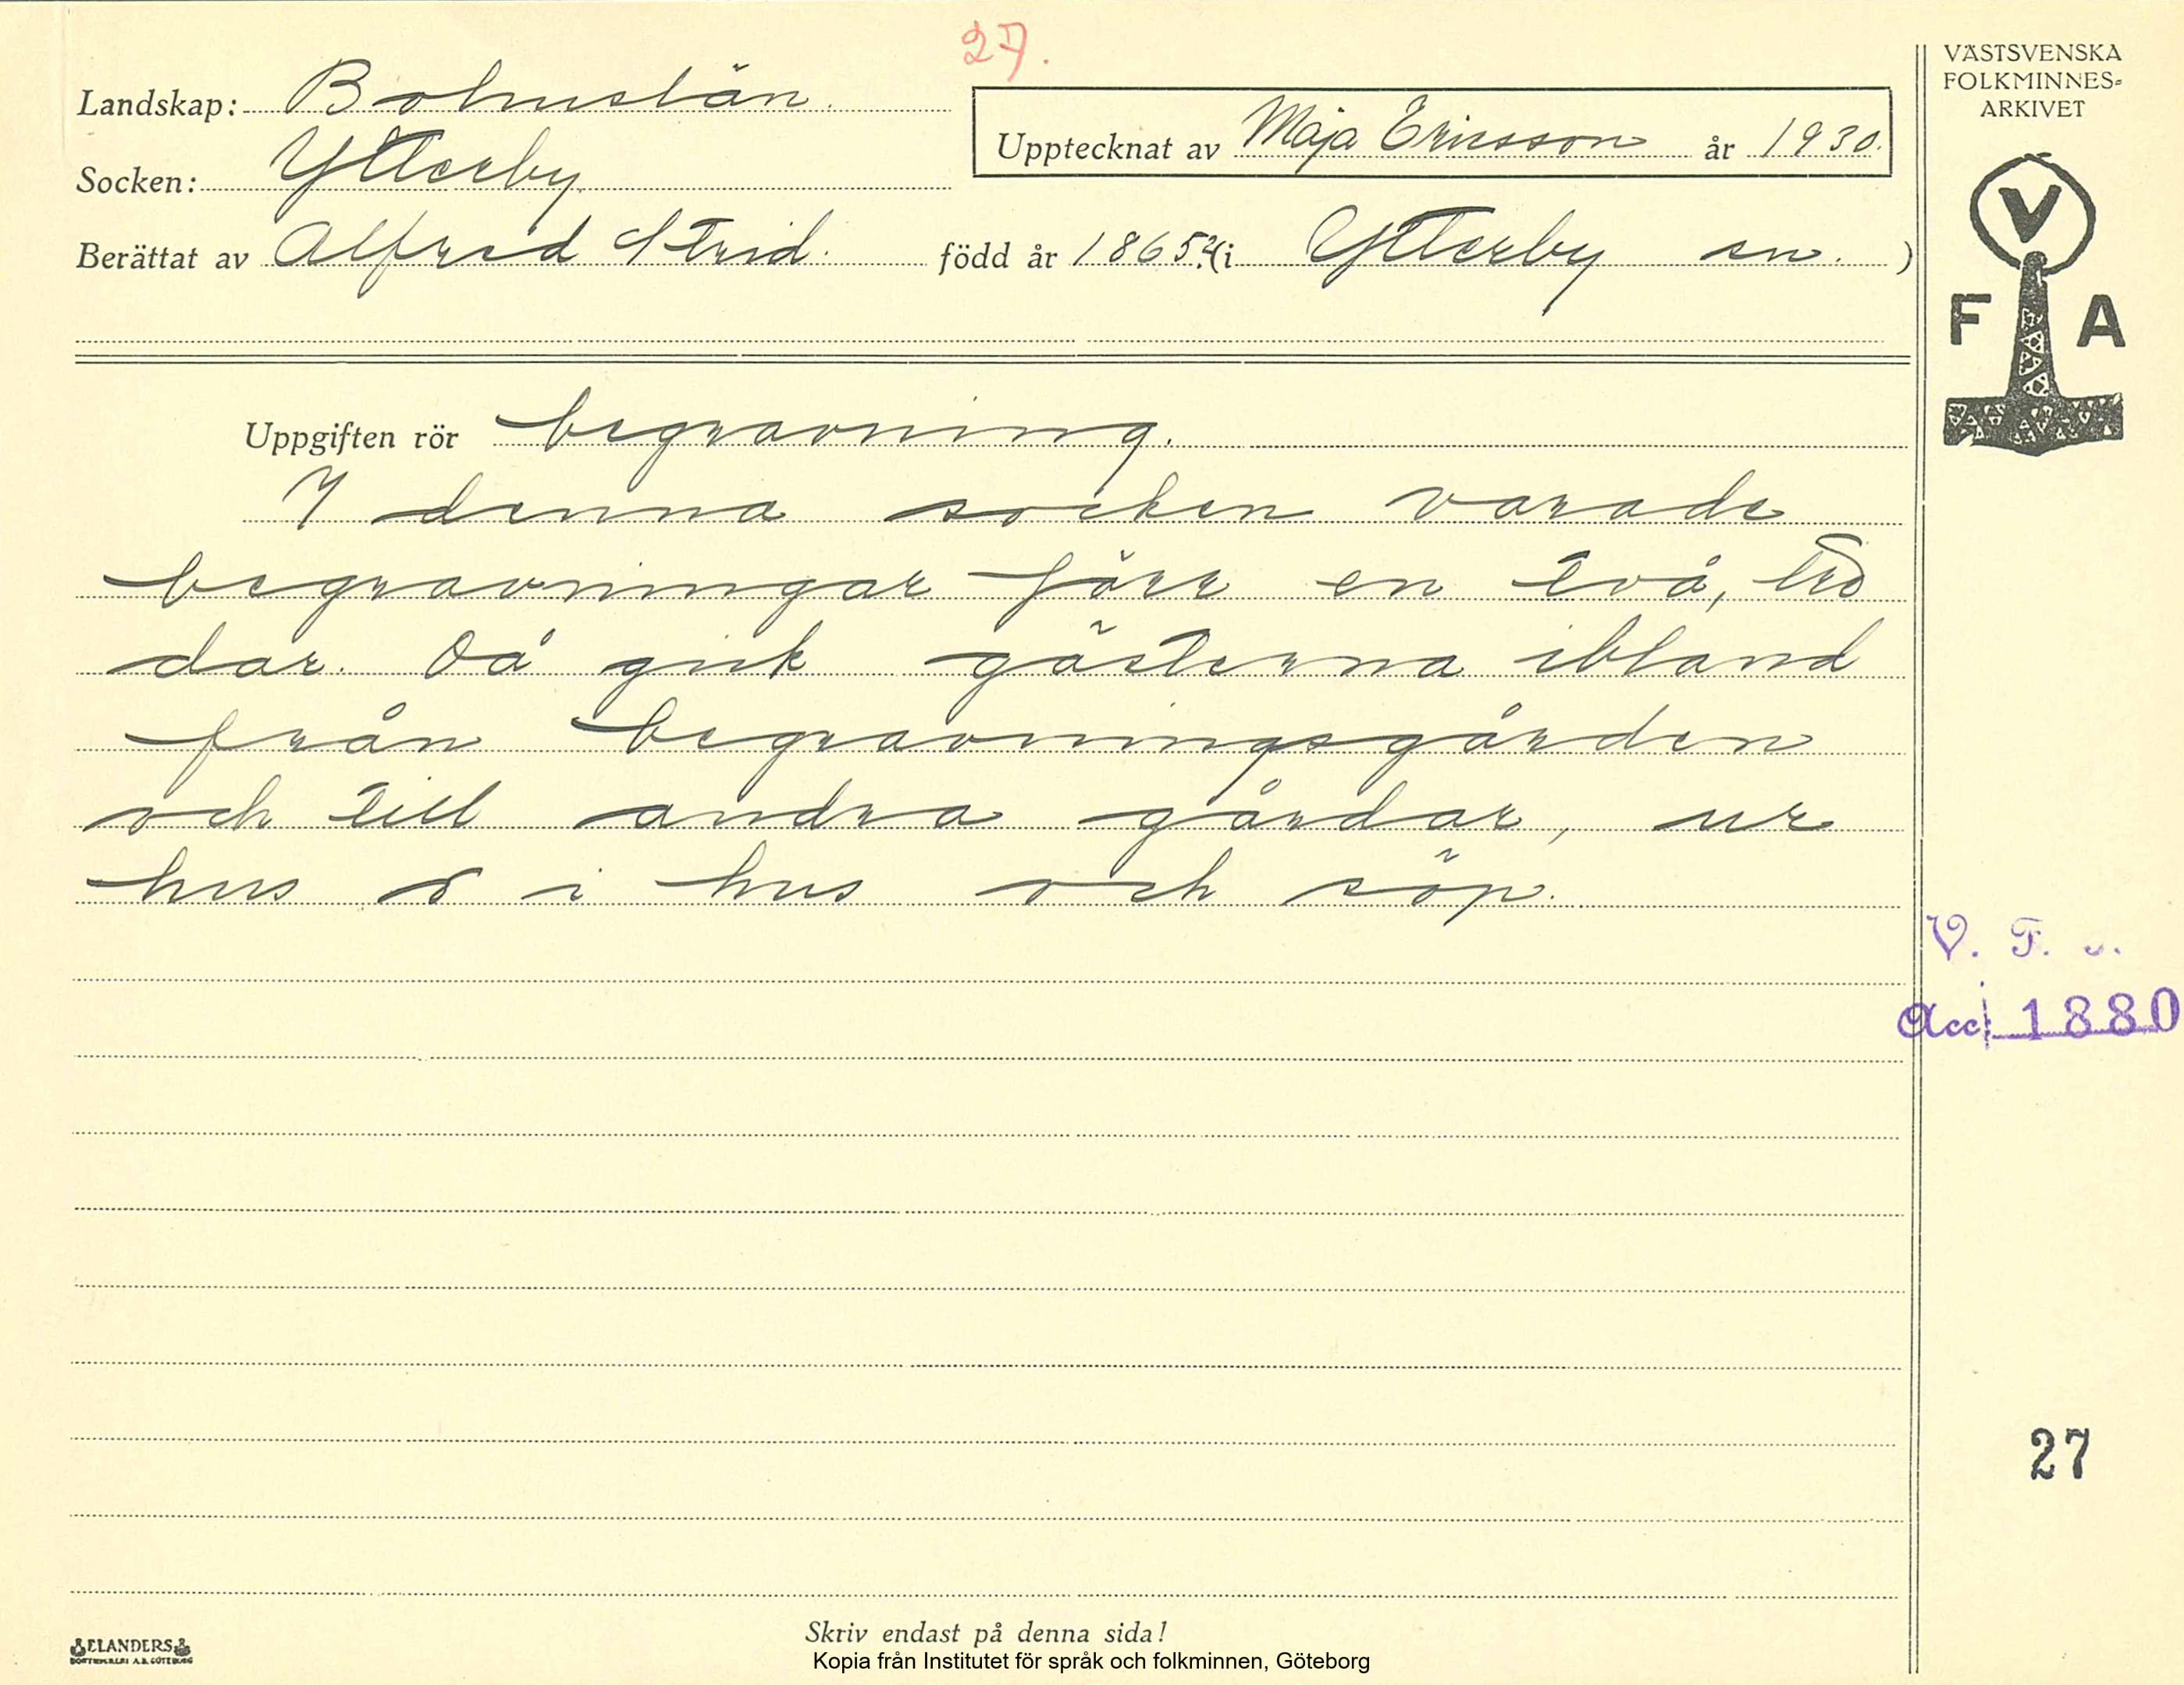 27.
VÄSTSVENSKA
FOLKMINNES=
ARKIVET
Landskap: Bohuslän.
Upptecknat av Maja Ericsson år 1930.
Socken: Ytterby.
Berättat av Alfred Strid. född år 1865? (i Ytterby sn. )
V
F A
Uppgiften rör begravning.
I denna socken varade
begravningar förr en två, tre
dar. Då gick gästerna ibland
från begravningsgården
och till andra gårdar, ur
hus o i hus och söp.
V. F.
Acc. 1880
27
ELANDERS
BOKTRYCKERI A.B. GÖTEBORG
Skriv endast på denna sida!
Kopia från Institutet för språk och folkminnen, Göteborg